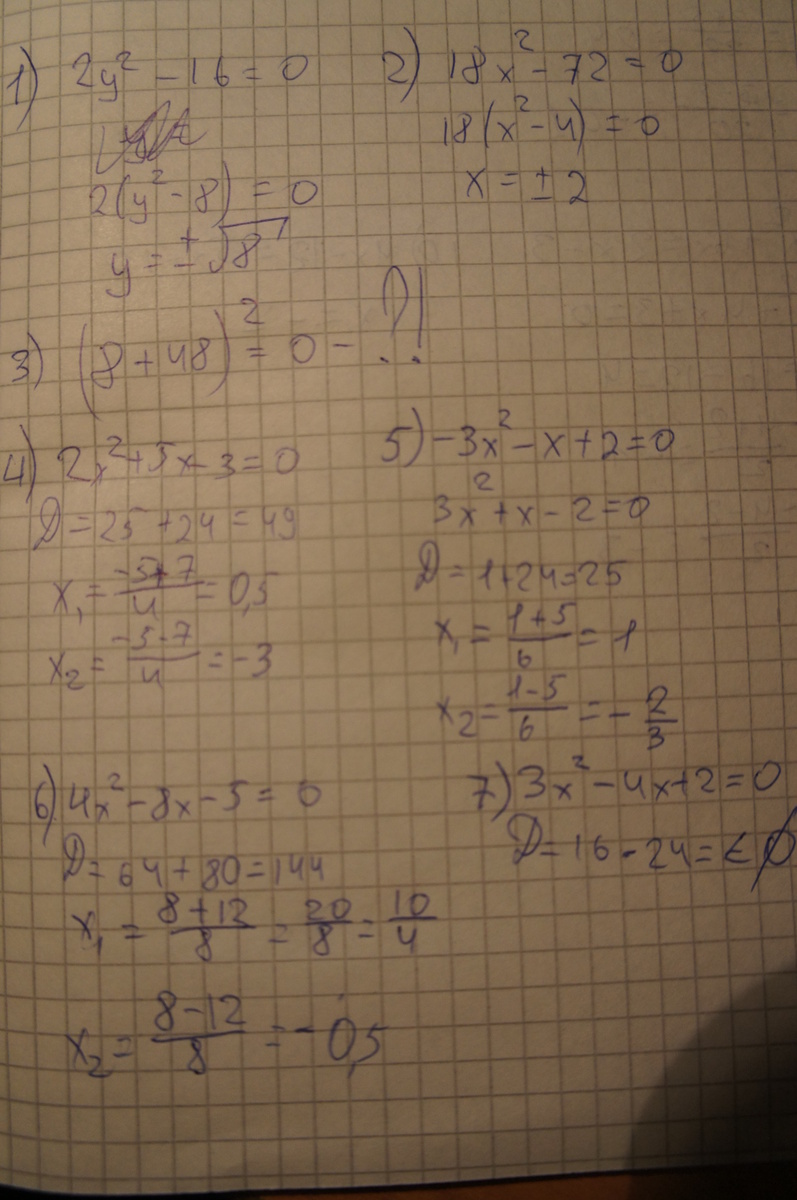 1) 2y² - 16 = 0
2(y² - 8) = 0
y = ±√8
2) 18x² - 72 = 0
18(x² - 4) = 0
x = ±2
3) (8 + 48)² = 0 - ?!
4) 2x² + 5x - 3 = 0
D = 25 + 24 = 49
x₁ = (-5+7)/4 = 0,5
x₂ = (-5-7)/4 = -3
5) -3x² - x + 2 = 0
3x² + x - 2 = 0
D = 1 + 24 = 25
x₁ = (1+5)/6 = 1
x₂ = (1-5)/6 = -2/3
6) 4x² - 8x - 5 = 0
D = 64 + 80 = 144
x₁ = (8+12)/8 = 20/8 = 10/4
x₂ = (8-12)/8 = -0,5
7) 3x² - 4x + 2 = 0
D = 16 - 24 = < 0